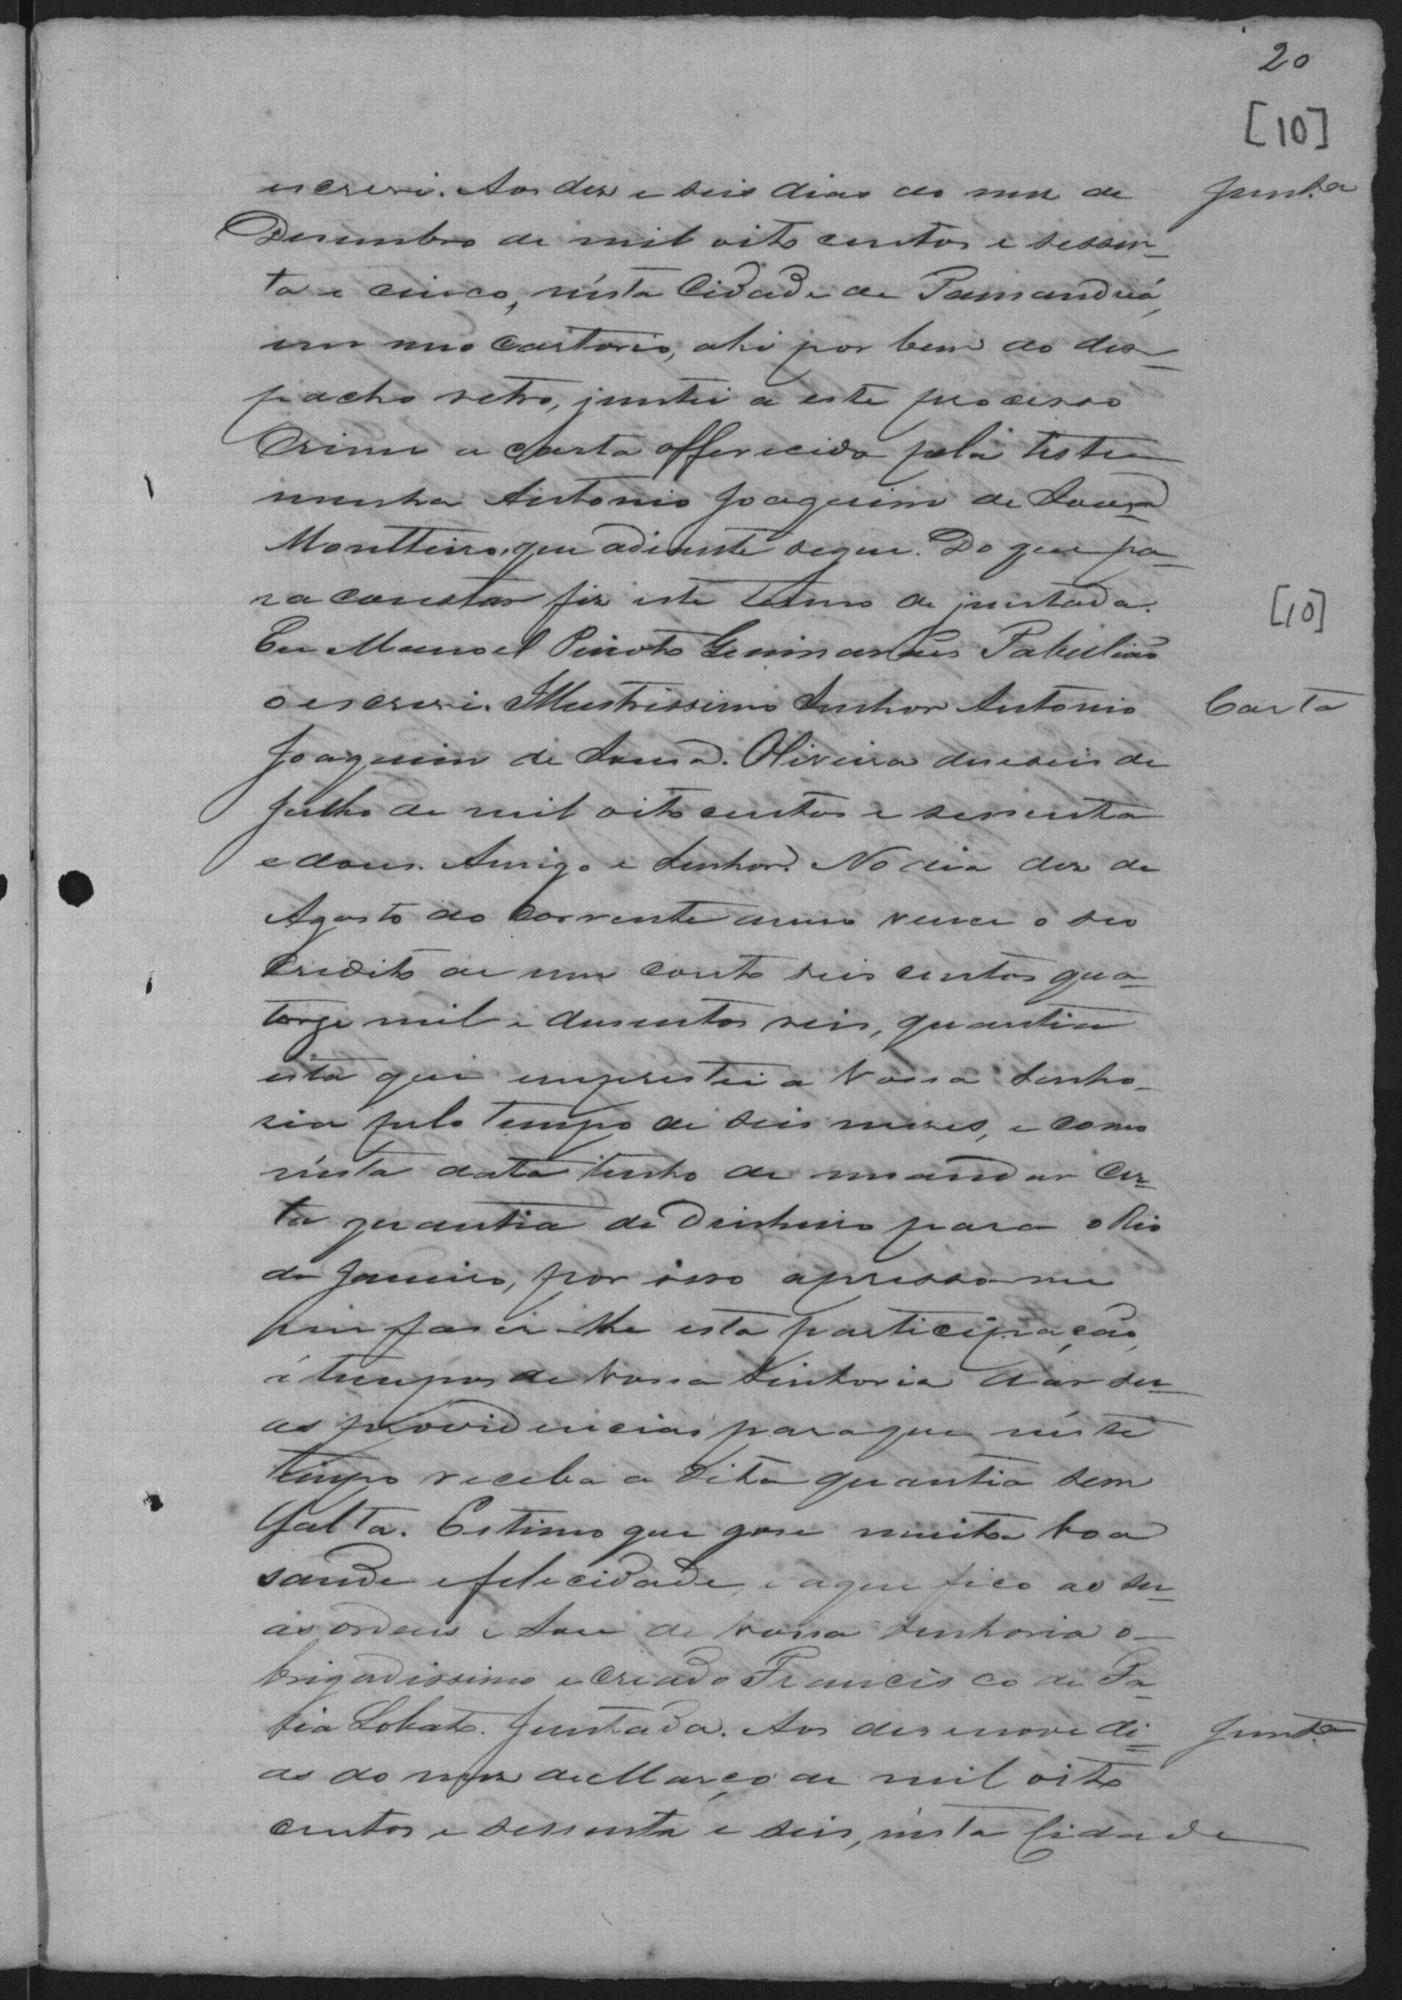 20
[10]
escrevi. Aos dez e seis dias do mez de
Junt.a
Desembro de mil oito centos e sessen=
ta e cinco, n'ésta Cidade de Tamanduá,
em meo Cartorio, ahi por bem do des=
pacho retro, juntei a este processo
Crime a Carta offerecida pela teste
munha Antonio Joaquim de Sousa
Montteiro, que adiante segue. Do que pa=
ra constar fiz este termo de juntada.
[10]
Eu Manoel Peixoto Guimarães Tabelião
o escrevi. Illustrissimo Senhor Antonio
Carta
Joaquim de Sousa. Oliveira deseseis de
Julho de mil oito centos e sessenta
e dous. Amigo e Senhor. No dia dez de
Agosto do corrente anno vence o seo
Credito de um conto seis centos qua=
torze mil e dusentos reis, quantia
esta que emprestei a Vossa Senho=
ria pelo tempo de seis meses, e como
n'ésta data tenho de mandar cer=
ta quantia de Dinheiro para o Rio
de Janeiro, por isso apresso-me
em faser-lhe esta participação,
é tempo de Vossa Senhoria dar su=
as providencias para que n'éste
tempo receba a dita quantia sem
falta. Estimo que gose muita boa
saude e felecidade, e aqui fico ao su=
as ordens e Sou de Vossa Senhoria o=
brigadissimo e criado Francisco de Pa=
ula Lobato. Juntada. Aos dez e nove di=
Junt.a
as do mez de Março de mil oito
centos e sessenta e seis, n'ésta Cidade